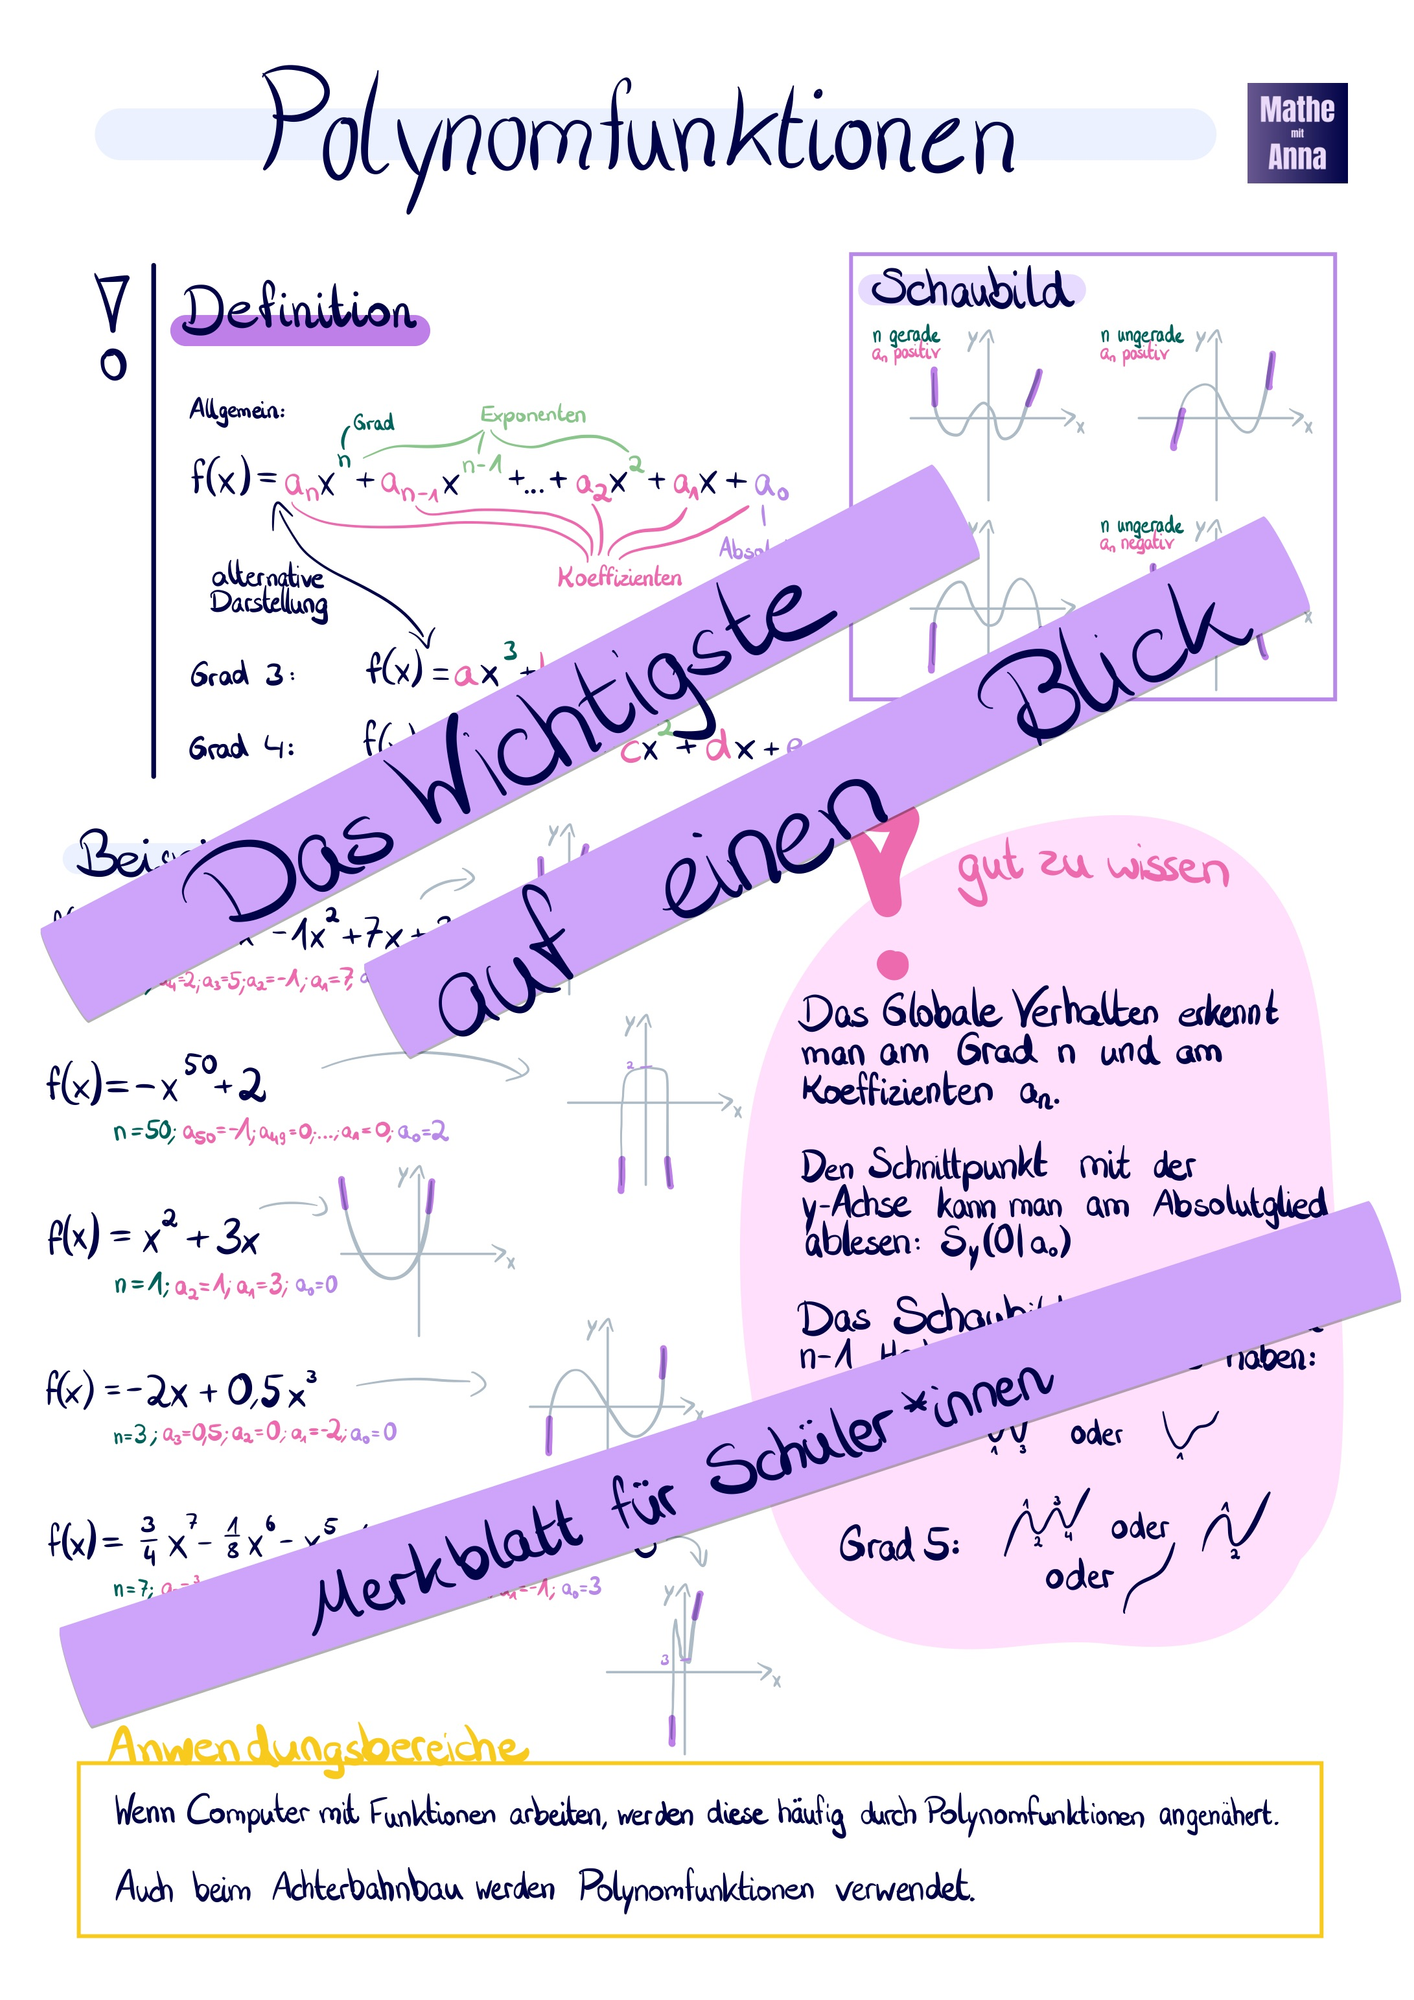 Polynomfunktionen
Mathe
mit
Anna
Definition
Allgemein:
Grad
Exponenten
f(x) = aₙxⁿ + aₙ₋₁xⁿ⁻¹ + ... + a₂x² + a₁x + a₀
Koeffizienten
alternative
Darstellung
Grad 3: f(x) = ax³
Grad 4: cx² + dx + e
Schaubild
n gerade
aₙ positiv
y
x
n ungerade
aₙ positiv
y
x
y
n ungerade
aₙ negativ
y
x
Das Wichtigste
auf einen Blick
y
-1x²+7x+
a₄=2; a₃=5; a₂=-1; a₁=7;
f(x)=-x⁵⁰+2
n=50; a₅₀=-1; a₄₉=0;...; a₁=0; a₀=2
y
2
x
f(x) = x² + 3x
n=1; a₂=1; a₁=3; a₀=0
y
x
f(x) = -2x + 0,5x³
n=3; a₃=0,5; a₂=0; a₁=-2; a₀=0
y
x
f(x) = 3/4 x⁷ - 1/8 x⁶ - x⁵
n=7;
a₁=-1; a₀=3
y
3
x
gut zu wissen
Das Globale Verhalten erkennt
man am Grad n und am
Koeffizienten aₙ.
Den Schnittpunkt mit der
y-Achse kann man am Absolutglied
ablesen: Sy(0|a₀)
Das Schaubild
n-1 haben:
1 3 oder 1
Grad 5: 1 2 3 4 oder 1 2
oder
Merkblatt für Schüler*innen
Anwendungsbereiche
Wenn Computer mit Funktionen arbeiten, werden diese häufig durch Polynomfunktionen angenähert.
Auch beim Achterbahnbau werden Polynomfunktionen verwendet.